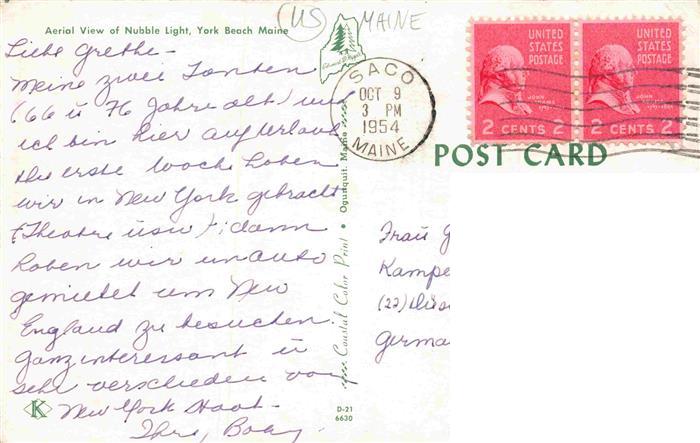 (US) MAINE
Aerial View of Nubble Light, York Beach Maine
Liebe Grethe -
Meine zwei Tanten
(66 u 76 Jahre alt) und
ich bin hier auf Urlaub
die erste Woche haben
wir in New York gebracht
(Theatre usw) i dann
haben wir un auto
gemietet um New
England zu besuchen.
Ganz interessant u
sehr verschieden von
New York Staat -
Ihre,
K
D-21
6630
Coastal Color Print • Ogunquit, Maine
SACO
OCT 9
3 PM
1954
MAINE
UNITED
STATES
POSTAGE
JOHN
ADAMS
2 CENTS 2
UNITED
STATES
POSTAGE
JOHN
ADAMS
2 CENTS 2
POST CARD
Frau G
Kampe
(22)
Germa